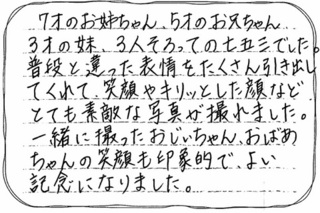 7才のお姉ちゃん、5才のお兄ちゃん
3才の妹、3人そろっての七五三でした。
普段と違った表情をたくさん引き出し
てくれて、笑顔やキリッとした顔など
とても素敵な写真が撮れました。
一緒に撮ったおじいちゃん、おばあ
ちゃんの笑顔も印象的で、よい
記念になりました。